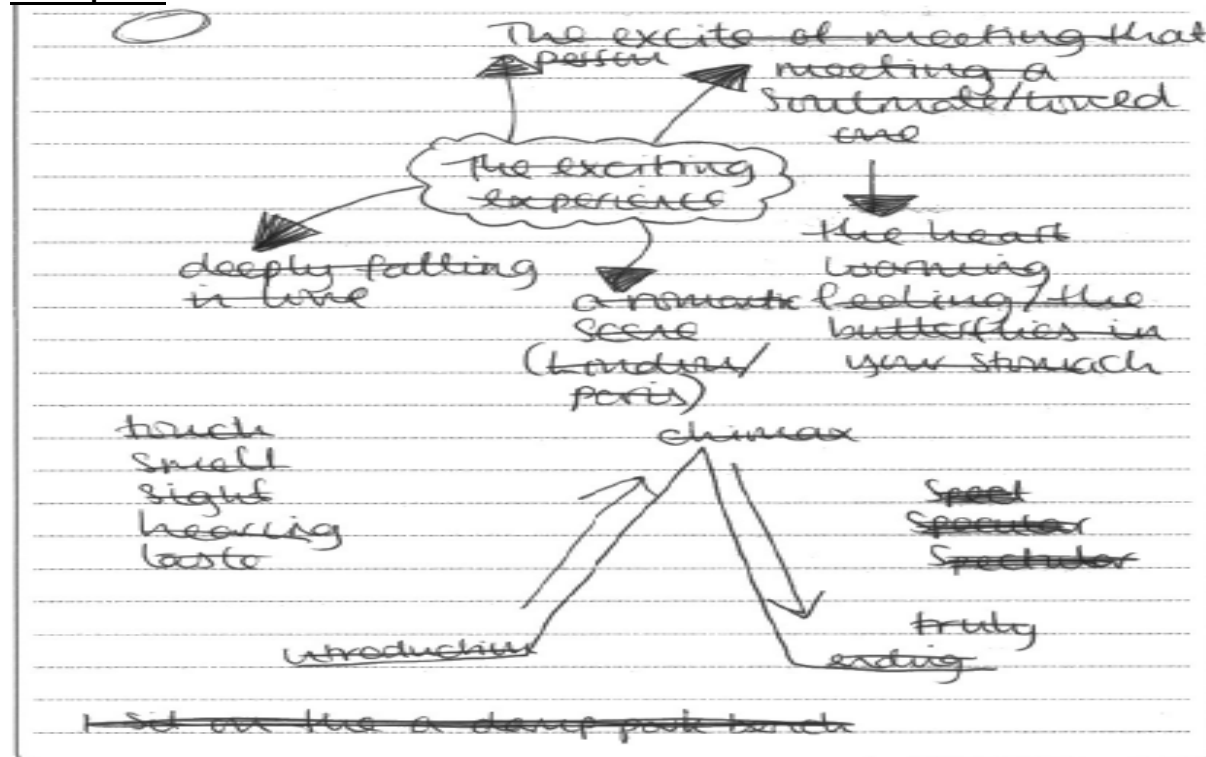 The excite of meeting that
person
meeting a
Soulmate/loved
one
The exciting
experience
the heart
warming
feeling/the
butterflies in
your stomach
deeply falling
in love
a romantic
scene
(London/
paris)
touch
smell
sight
hearing
taste
climax
Spect
Specular
Spectular
introduction
truly
ending
I sit on the a damp park bench